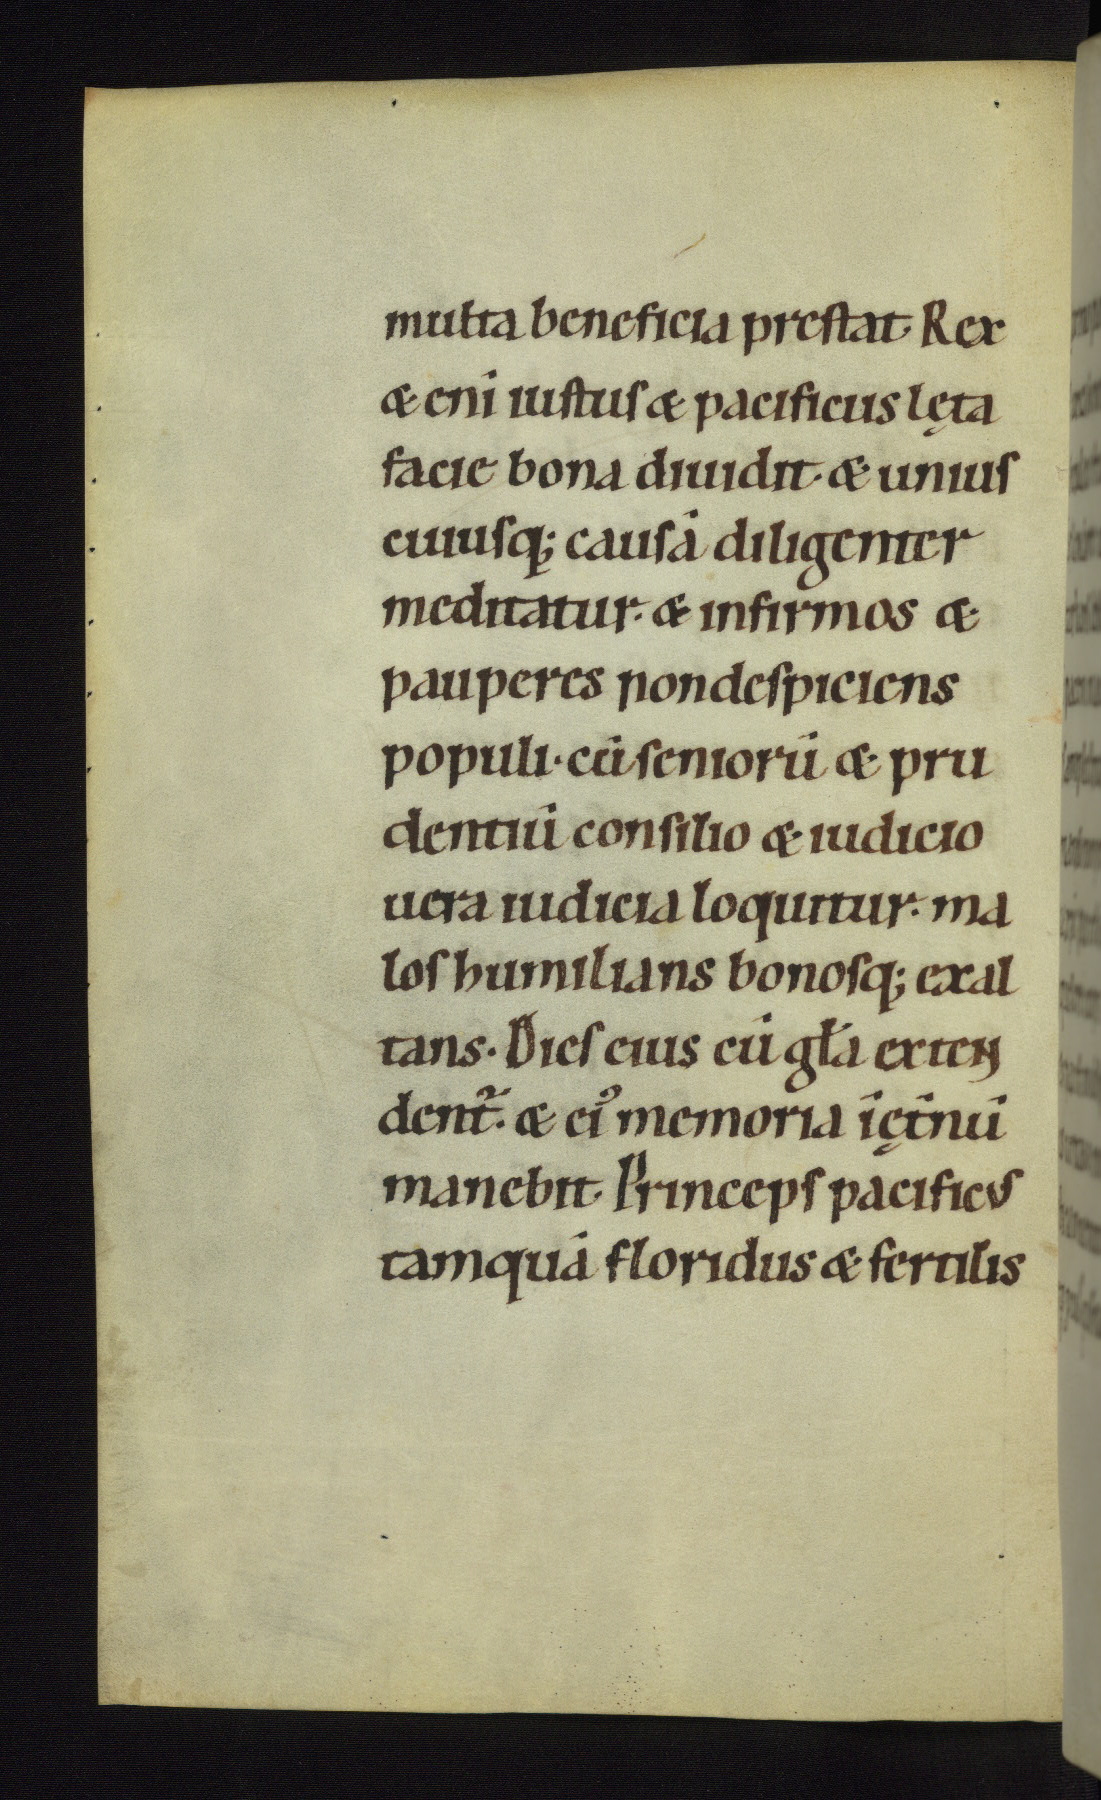 multa beneficia prestat. Rex
& eni̅ iustus & pacificus lęta
facie bona diuidit. & unius
cuiusq; causa̅ diligenter
meditatur. & infirmos &
pauperes non despiciens
populi. cu̅ senioru̅ & pru
dentiu̅ consilio & iudicio
uera iudicia loquitur. ma
los humilians bonosq; exal
tans. Dies eius cu̅ gl̅a exten
dent᷑. & eiꝰ memoria i̅ ęt̅nu̅
manebit. Princeps pacificus
tamqua̅ floridus & fertilis